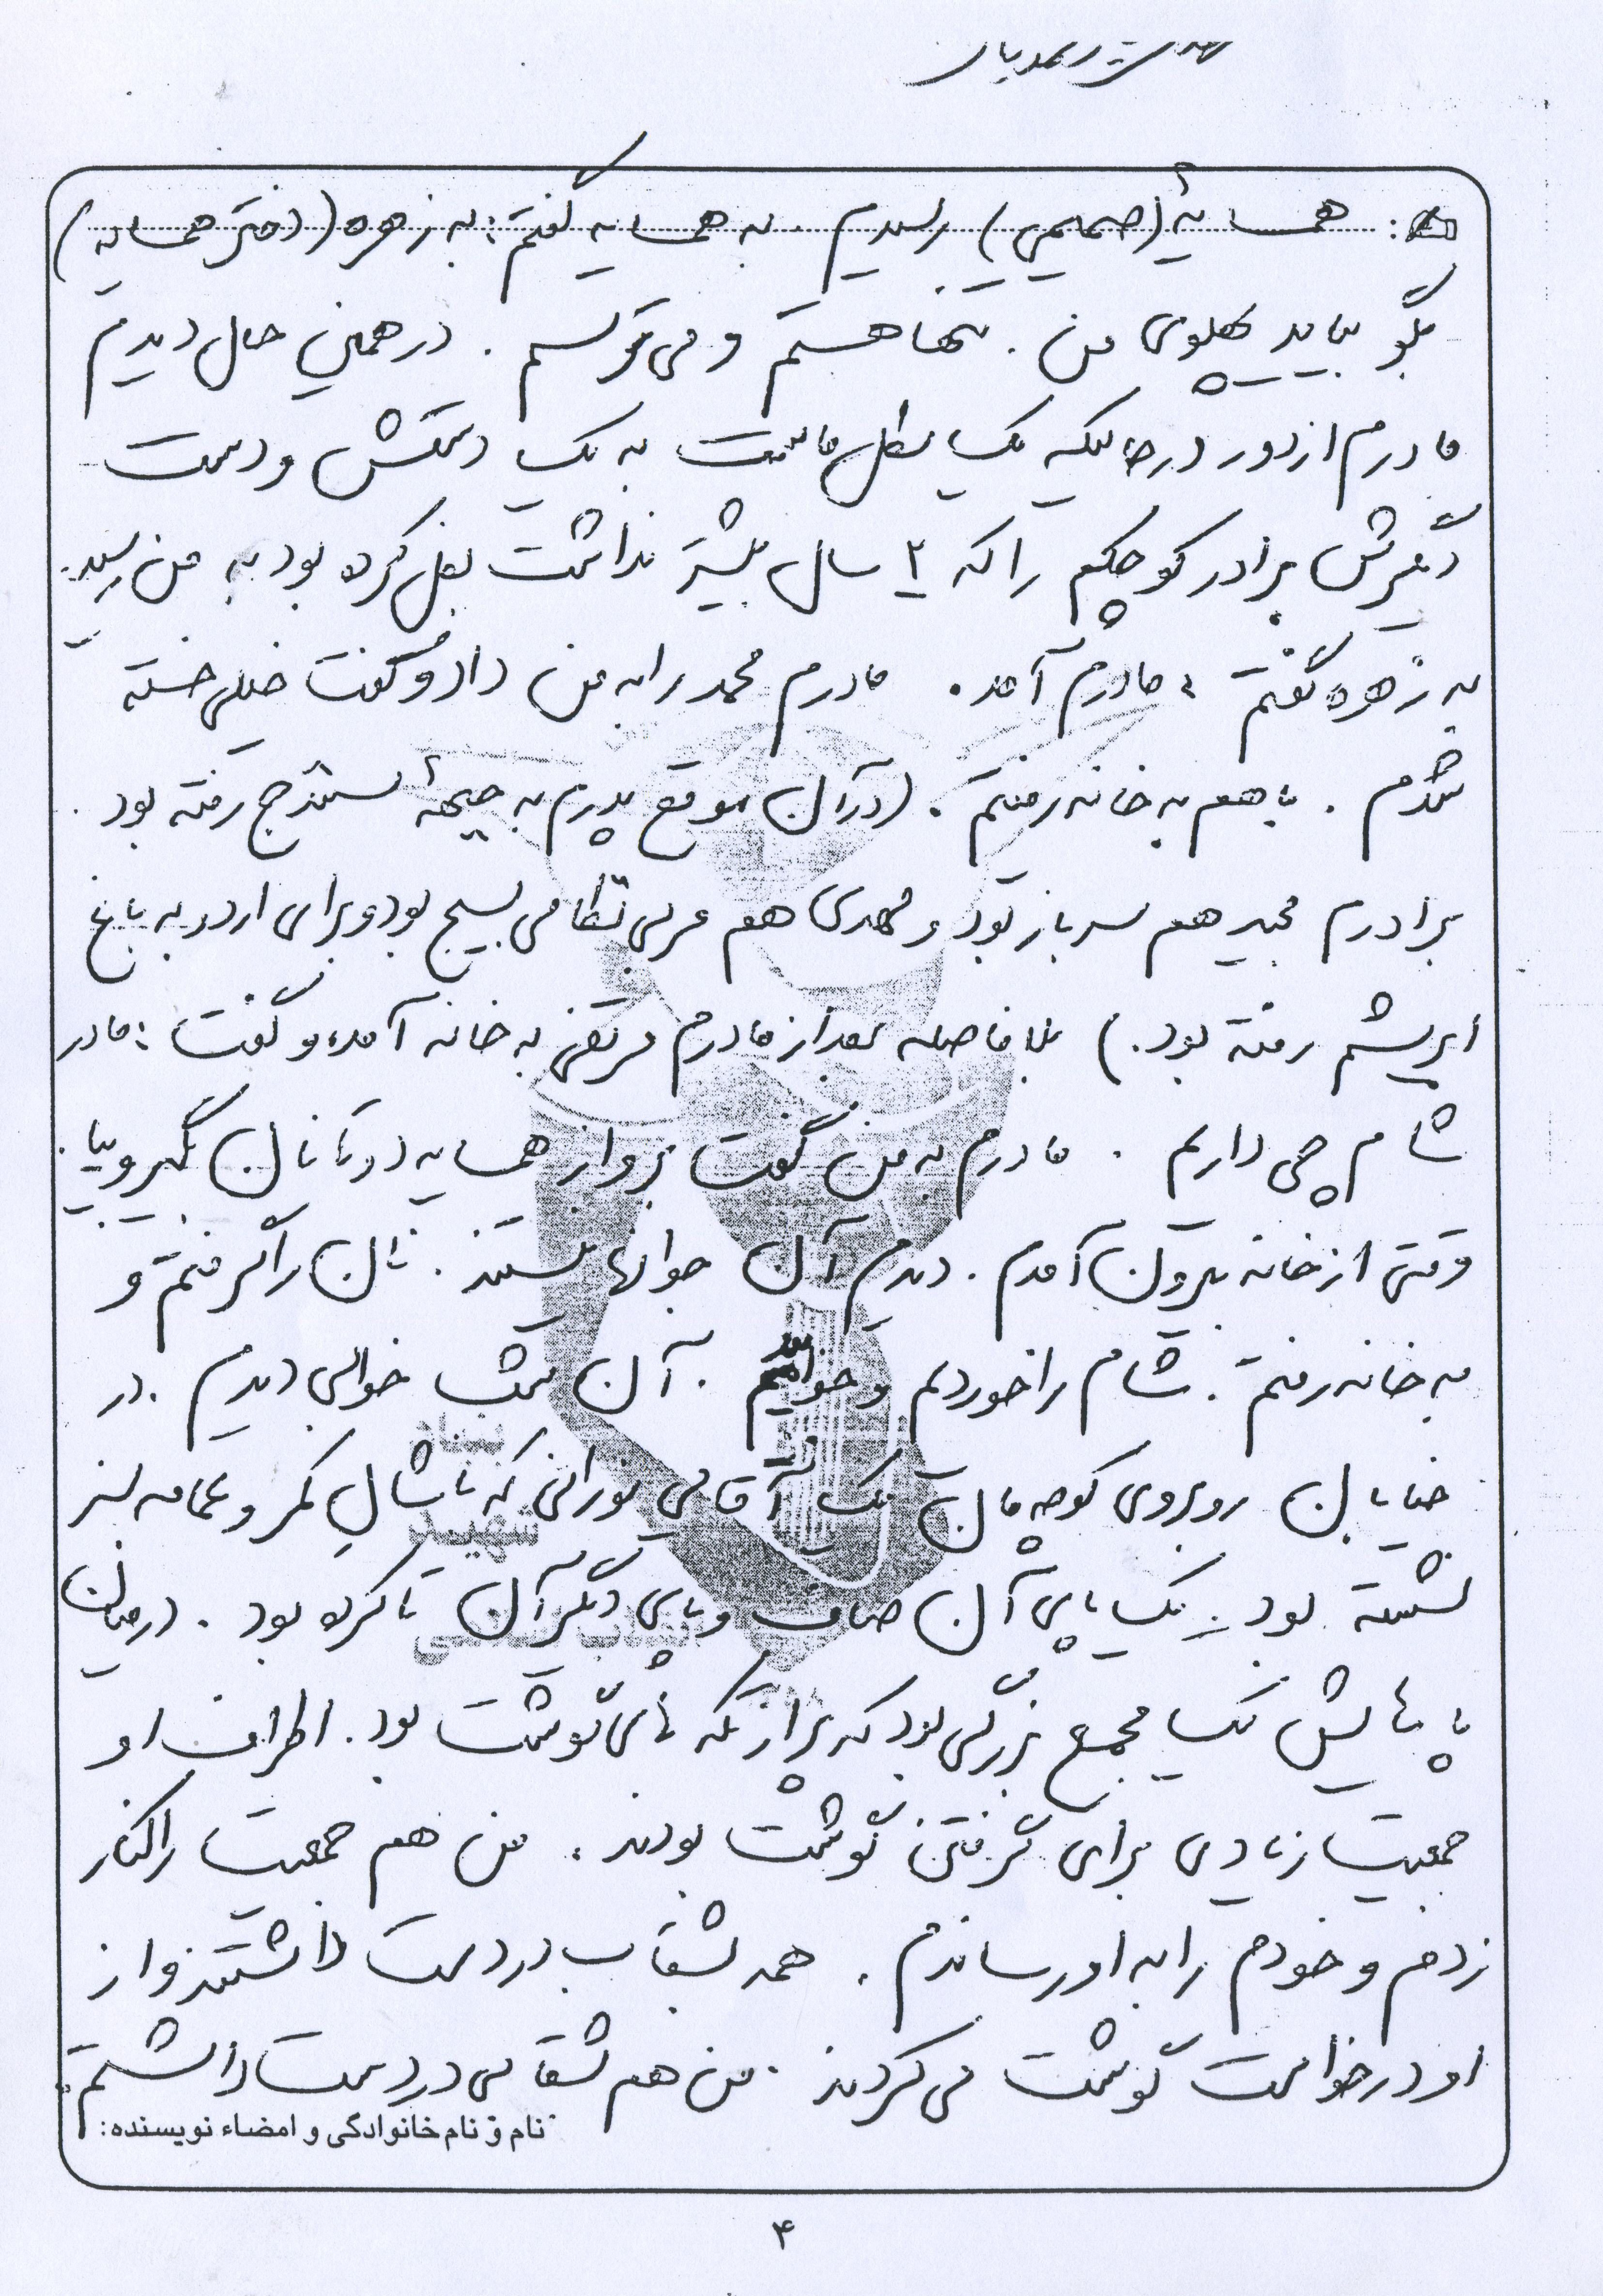 همسایهٔ (صمیمی) رسیدم. به همسایه گفتم: به زهره (دختر همسایه)
بگو بیاید پهلوی من. تنها هستم و می‌ترسم. در همین حال دیدم
مادرم از دور در حالیکه یک سطل ماست به یک دستش و دست
دیگرش برادر کوچکم را که ۲ سال بیشتر نداشت بغل کرده بود به من رسید.
به زهره گفتم: مادرم آمد. مادرم محمد را به من داد و گفت خیلی خسته
شدم. با هم به خانه رفتیم. (در آن موقع پدرم به جبههٔ سنندج رفته بود.
برادرم مجید هم سرباز بود و مهدی هم مربی نظامی بسیج بود و برای اردو به باغ
ابریشم رفته بود.) بلافاصله بعد از مادرم مرتضی به خانه آمد و گفت: مادر
شام چی داریم. مادرم به من گفت برو از همسایه دو تا نان بگیر و بیا.
وقتی از خانه بیرون آمدم. دیدم آن جوانها نیستند. نان را گرفتم و
به خانه رفتم. شام را خوردیم و خوابیدیم. آن شب خوابی دیدم. در
خیابان روبروی کوچه‌مان یک آقایی نورانی که با شالِ کمر و عمامه سبز
نشسته بود. یک پای آن صاف و پای دیگر آن تا کرده بود. در میان
پاهایش یک مجمع بزرگی بود که پر از تکه‌های گوشت بود. اطراف او
جمعیت زیادی برای گرفتن گوشت بودند. من هم جمعیت را کنار
زدم و خودم را به او رساندم. همه بشقاب در دست داشتند و از
او درخواست گوشت می‌کردند. من هم بشقابی در دست داشتم.
نام و نام خانوادگی و امضاء نویسنده:
بنیاد
شهید
۴